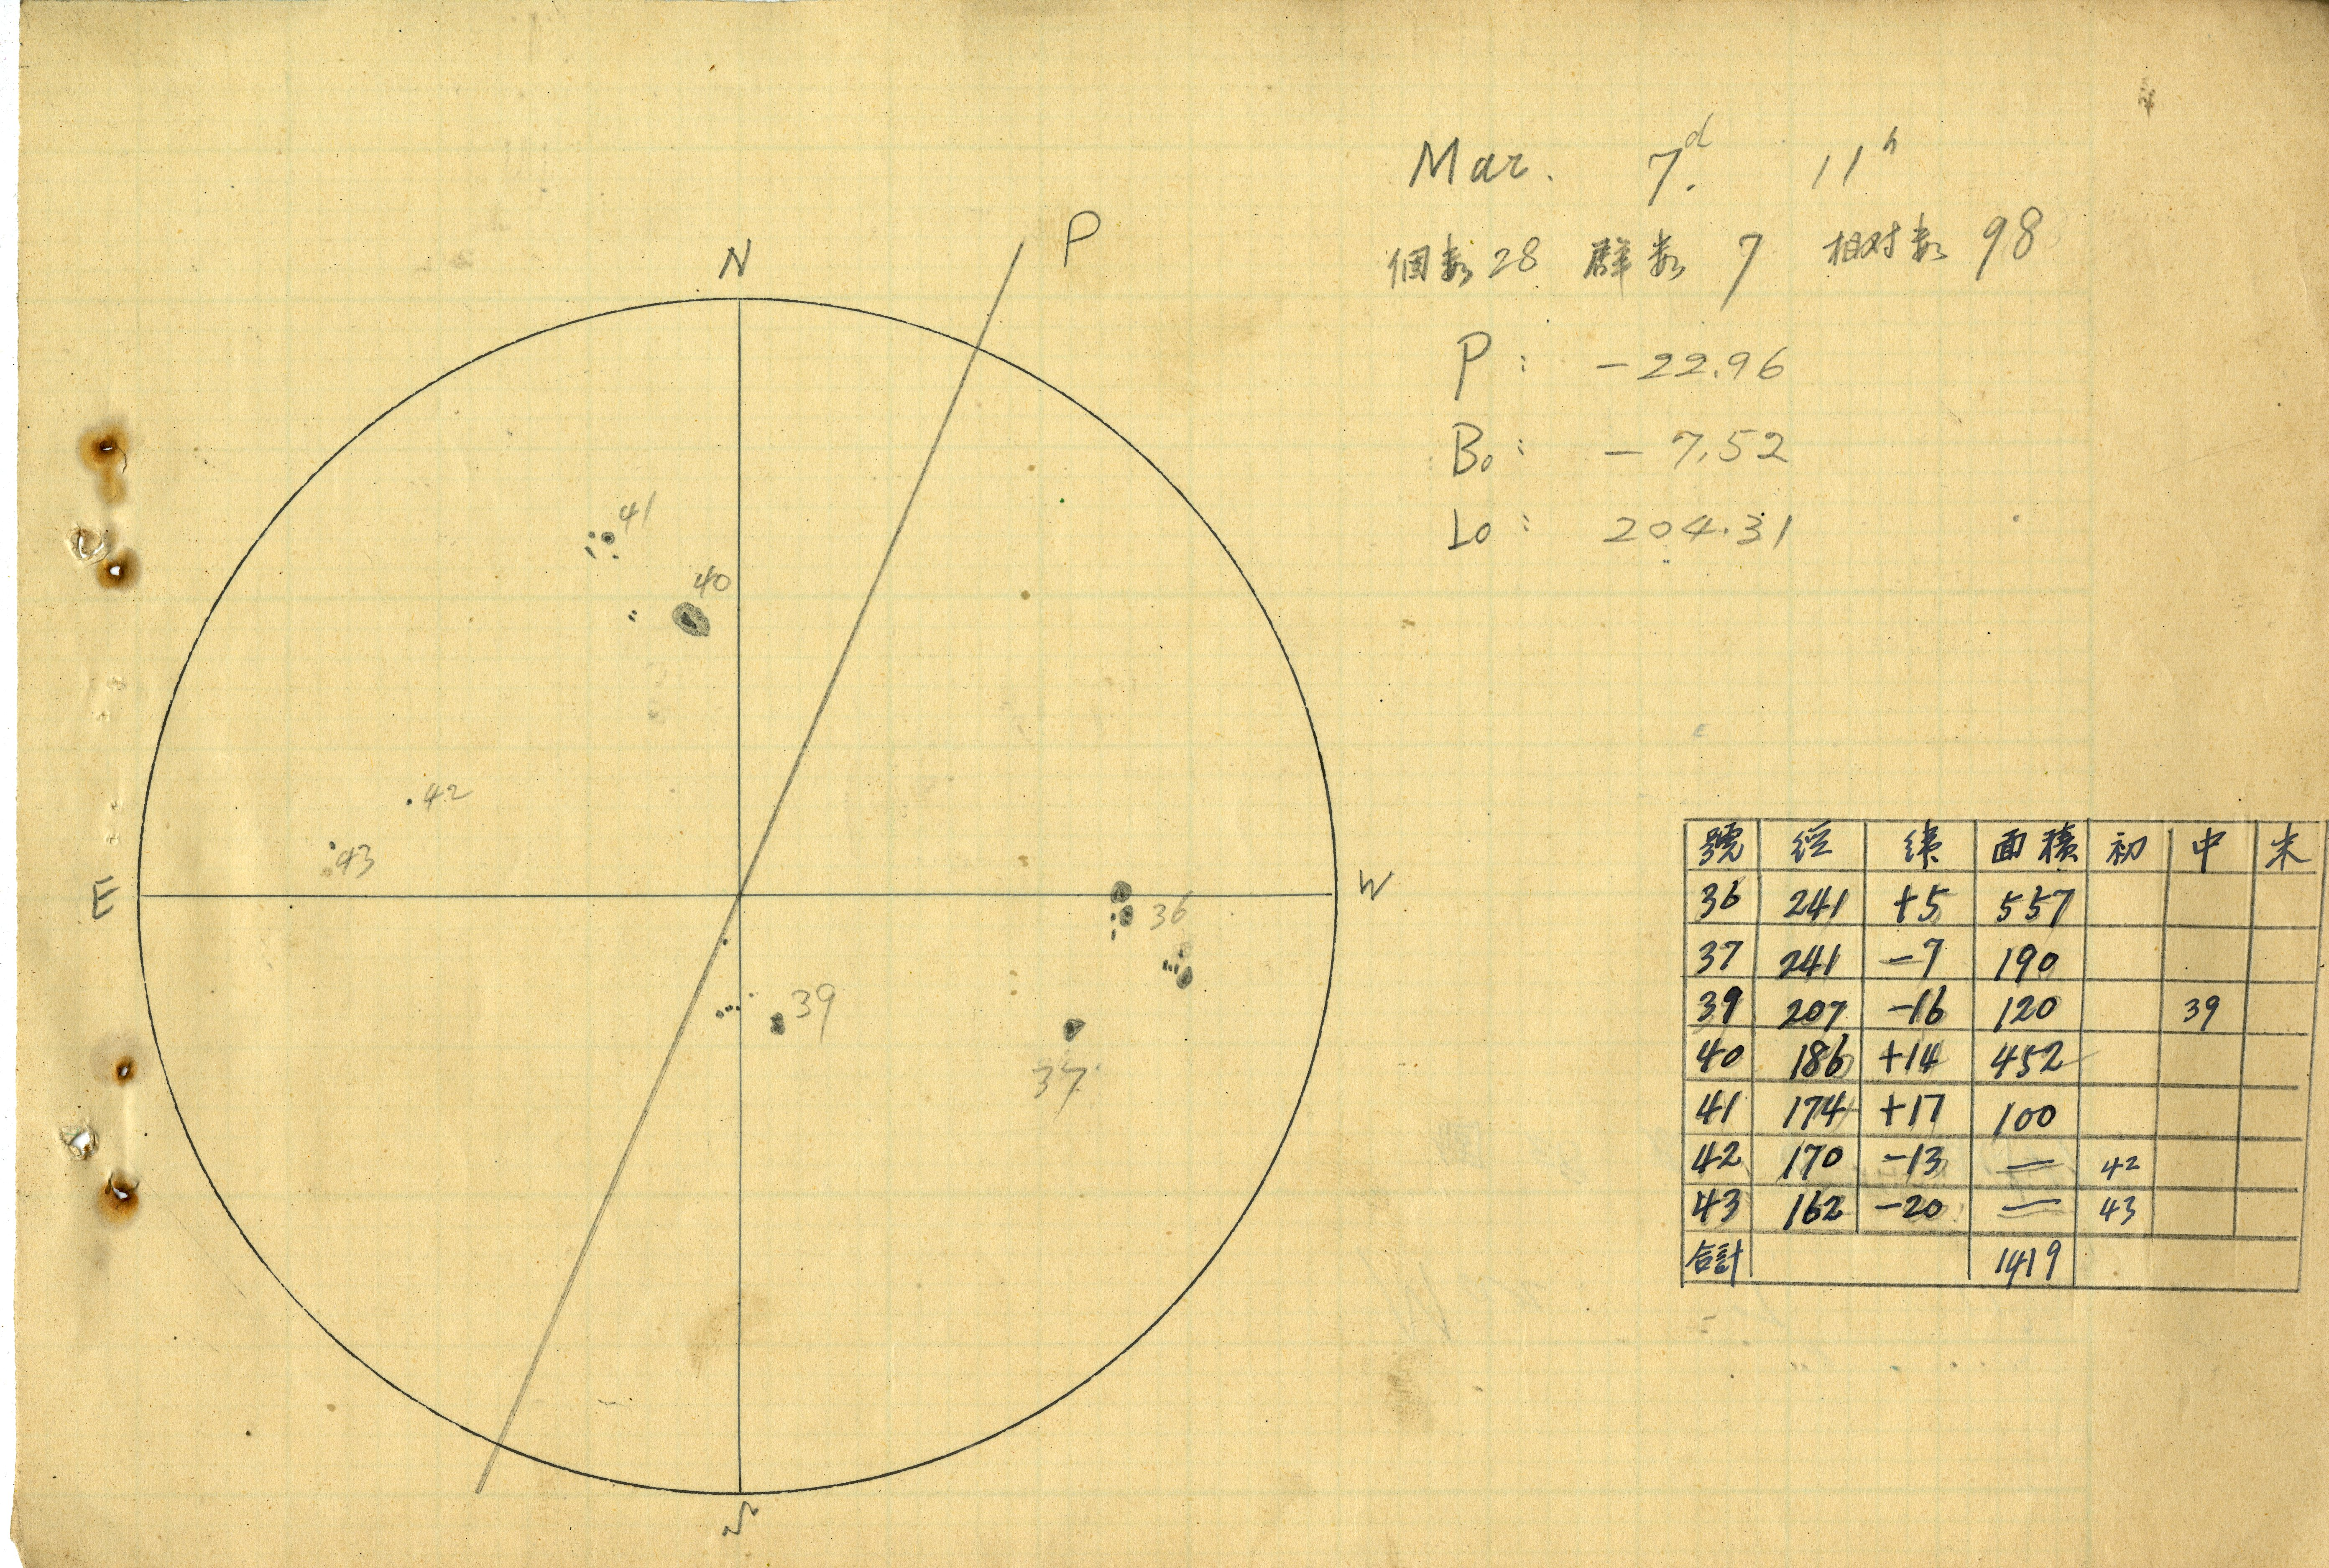 Mar. 7.d 11h
個数 28 群数 7 相対数 98
P : -22.96
B₀ : -7.52
L₀ : 204.31
P
N
41
40
42
43
E
W
36
39
37
S
號 経 緯 面積 初 中 末
36 241 +5 557
37 241 -7 190
39 207 -16 120 39
40 186 +14 452
41 174 +17 100
42 170 -13 — 42
43 162 -20 — 43
合計 1419